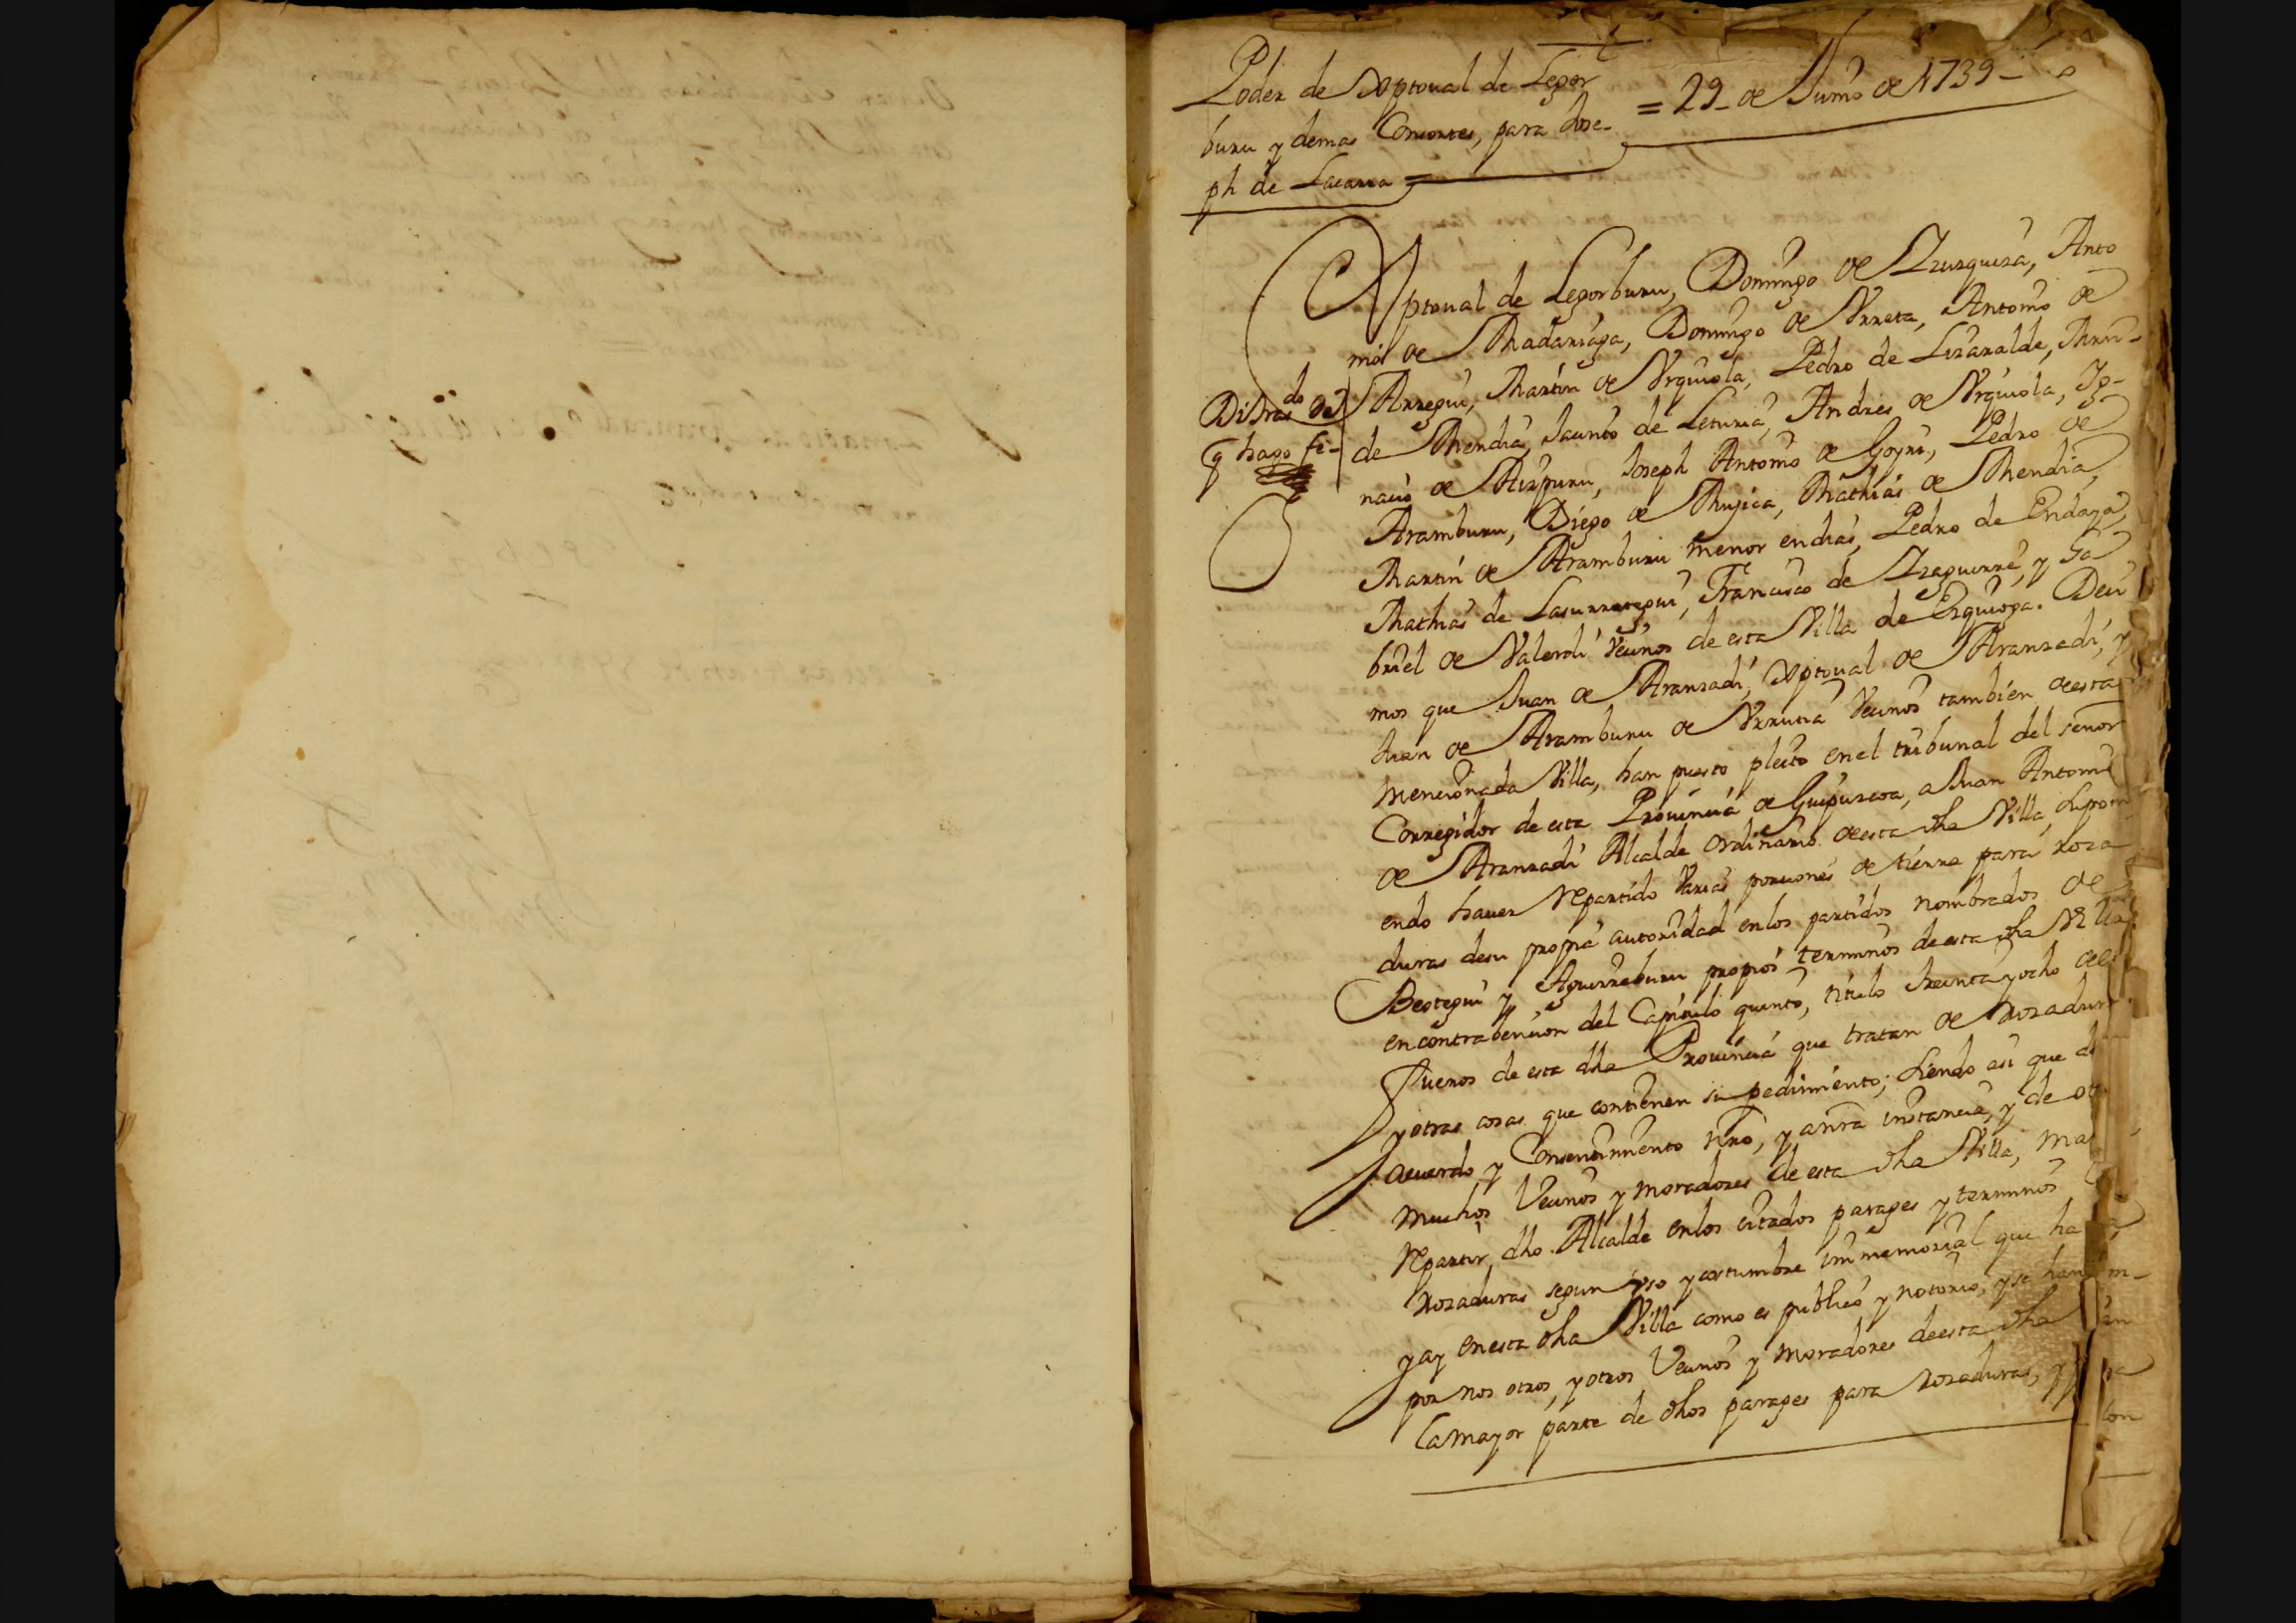 Poder de Xptoual de Legor
buru y demas Consortes, para Jose-
ph de Lacarra =
= 29 - de Junio de 1739 -
Xptoual de Legorburu, Domingo de Yzurquiza, Anto
nio de Madariaga, Domingo de Vrreta, Antonio de
Arregui, Martin de Vrquiola, Pedro de Lizaralde,
de Mendia, Jacinto de Leturia, Andres de Vrquiola, Ig-
nacio de Aizpuru, Joseph Antonio de Goyri, Pedro de
Aramburu, Diego de Mujica, Mathias de Mendia,
Martin de Aramburu menor endias, Pedro de Endaya,
Mathias de Lasurrategui, Francisco de Yzaguirre, y Ga
briel de Valerdi Vecinos de esta Villa de Ezquioga. Deci
mos que Juan de Aranzadi, Xptoual de Aranzadi, y
Juan de Aramburu de Vrrutia Vecinos tambien de esta
mencionada Villa, han puesto pleito en el tribunal del señor
Corregidor de esta Prouincia de Guipuzcoa, a Juan Antonio
de Aranzadi Alcalde ordinario de esta dha Villa, suponi
endo hauer repartido Varias porciones de tierra para roza
duras de su propia autoridad en los partidos nombrados de
Beotegui y Aguirreburu propios terminos de esta dha Villa
en contrabencion del Capitulo quinto, titulo treinta y ocho de
Fueros de esta dha Prouincia que tratan de rozadur
y otras cosas que contienen su pedimiento; siendo asi que de
acuerdo y Consentimiento nro, y a nra instancia, y de ot
muchos Vecinos y moradores de esta dha Villa,
repartir dho Alcalde en los citados parages y terminos
rozaduras segun vso y costumbre immemorial que ha
y ay en esta dha Villa como es publico y notorio, y se han m-
por nos otros, y otros Vecinos y moradores de esta dha
la mayor parte de dhos parages para rozaduras, y
Di traslado de
q hago fe -